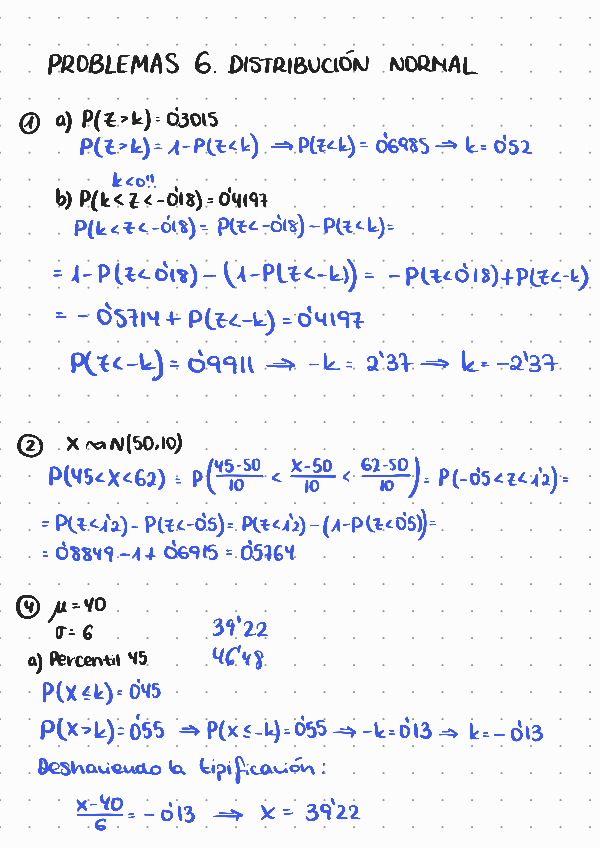 PROBLEMAS 6. DISTRIBUCIÓN NORMAL
① a) P(Z>k)=0'3015
P(Z>k)=1-P(Z<k) ⇒ P(Z<k)=0'6985 → k=0'52
k<0!!
b) P(k<Z<-0'18)=0'4197
P(k<Z<-0'18)= P(Z<-0'18)-P(Z<k)=
=1-P(Z<0'18)-(1-P(Z<-k))= -P(Z<0'18)+P(Z<-k)
= -0'5714+P(Z<-k)=0'4197
P(Z<-k)=0'9911 → -k=2'37 → k=-2'37
② X ~ N(50,10)
P(45<X<62) = P(45-50/10 < X-50/10 < 62-50/10) = P(-0'5<Z<1'2)=
=P(Z<1'2)-P(Z<-0'5)= P(Z<1'2)-(1-P(Z<0'5))=
=0'8849-1+0'6915=0'5764
④ μ=40
σ=6 39'22
a) Percentil 45 46'48
P(X≤k)=0'45
P(X>k)=0'55 ⇒ P(X≤-k)=0'55 → -k=0'13 → k=-0'13
Deshaciendo la tipificación:
X-40/6 = -0'13 → X = 39'22